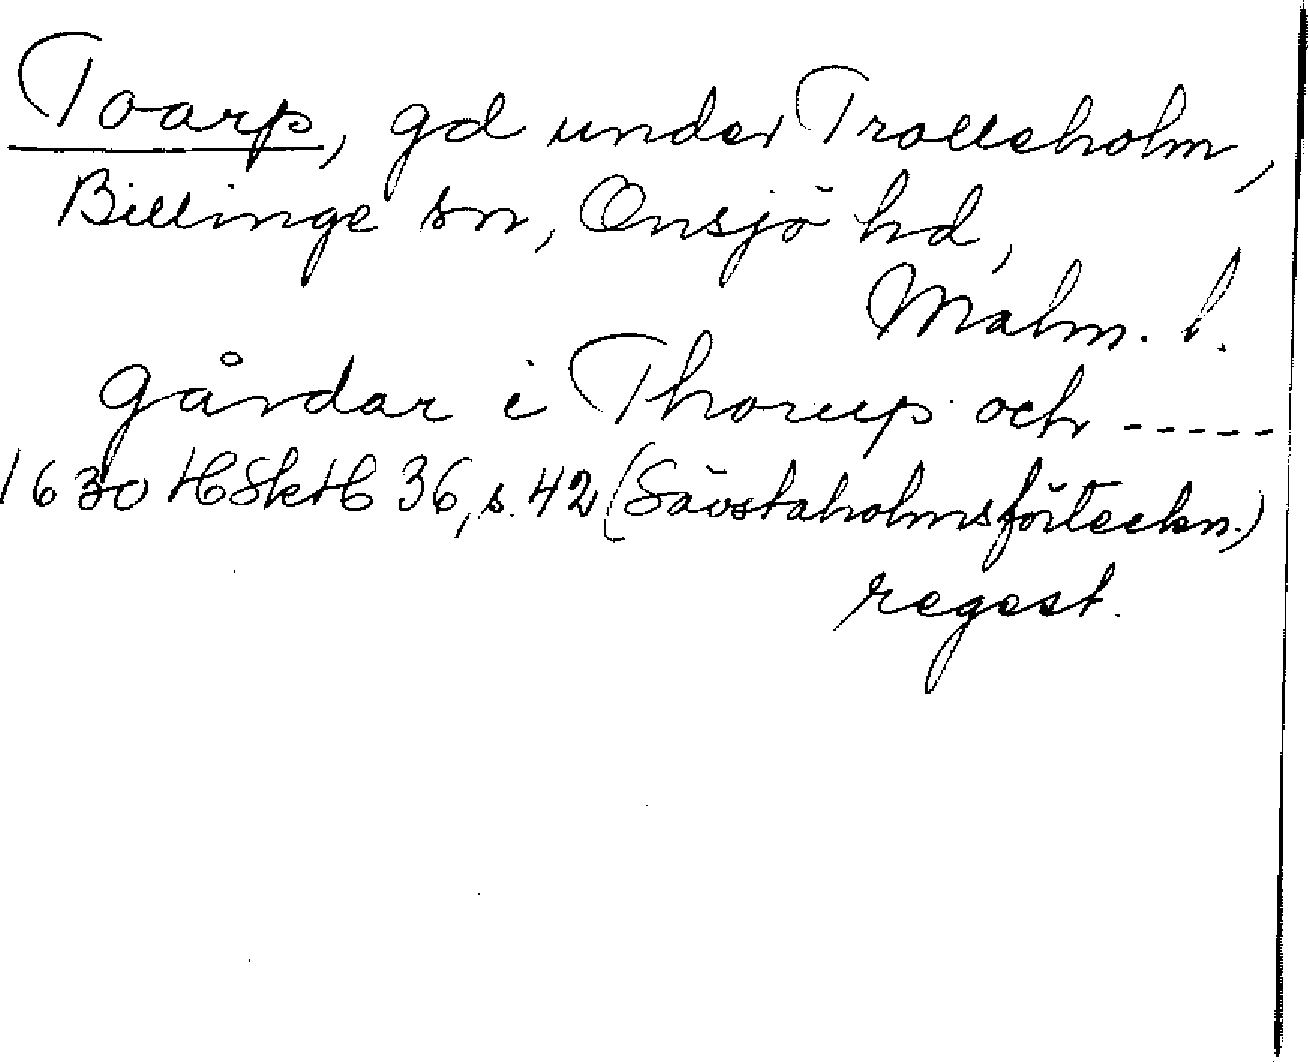 Toarp, gd under Trolleholm,
Billinge sn, Onsjö hd,
Malm. l.
gårdar i Thorup och -----
1630 HSkH 36, s. 42 (Sävstaholmsförteckn.)
regest.